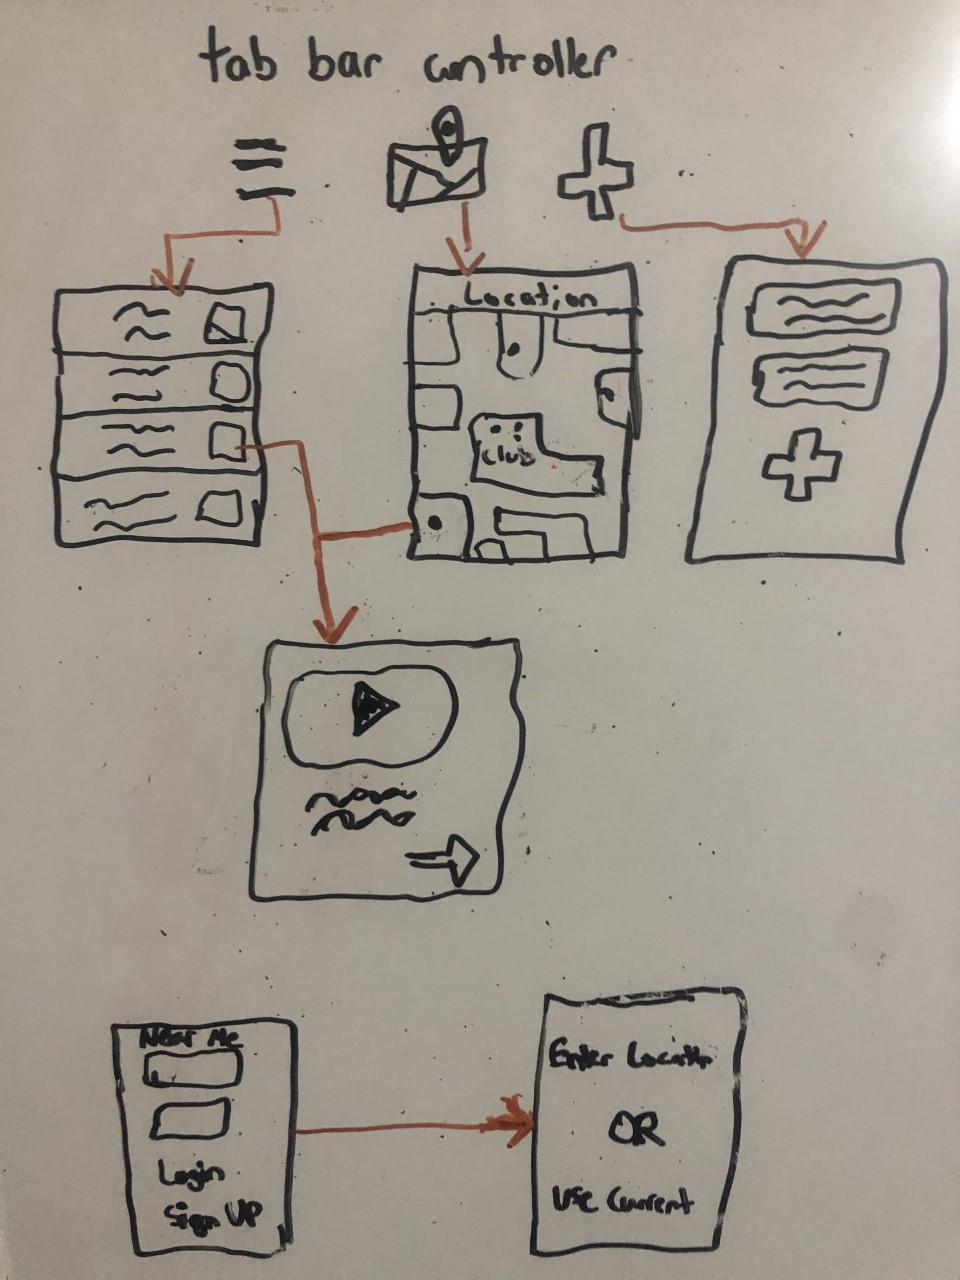 tab bar controller
Location
club
Near Me
Login
Sign UP
Enter Location
OR
Use Current